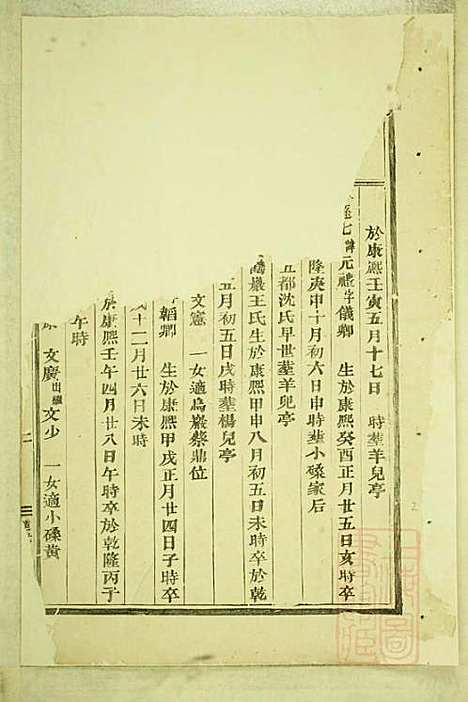 於康熙壬寅五月十七日 時塟羊兒亭
七諱元禮字儀卿 生於康熙癸酉正月廿五日亥時卒
隆庚申十月初六日申時塟小磉家后
五都沈氏早世塟羊兒亭
巖王氏生於康熙甲申八月初五日未時卒於乾
五月初五日戌時塟楊兒亭
文憲 一女適烏巖蔡鼎位
韜卿 生於康熙甲戌正月廿四日子時卒
十二月廿六日未時
於康熙壬午四月廿八日午時卒於乾隆丙子
午時
文慶出繼文少 一女適小磉黄
二